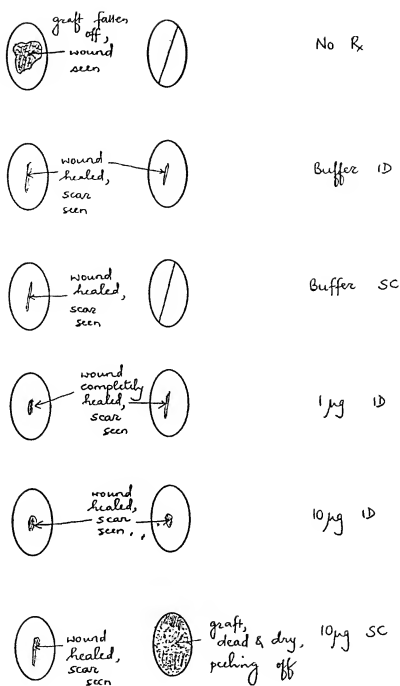 graft fallen
off,
wound
seen
No Rx
wound
healed,
scar
seen
Buffer ID
wound
healed,
scar
seen
Buffer SC
wound
completely
healed,
scar
seen
1 µg ID
wound
healed,
scar
seen..
10 µg ID
wound
healed,
scar
seen
graft,
dead & dry,
peeling off
10 µg SC